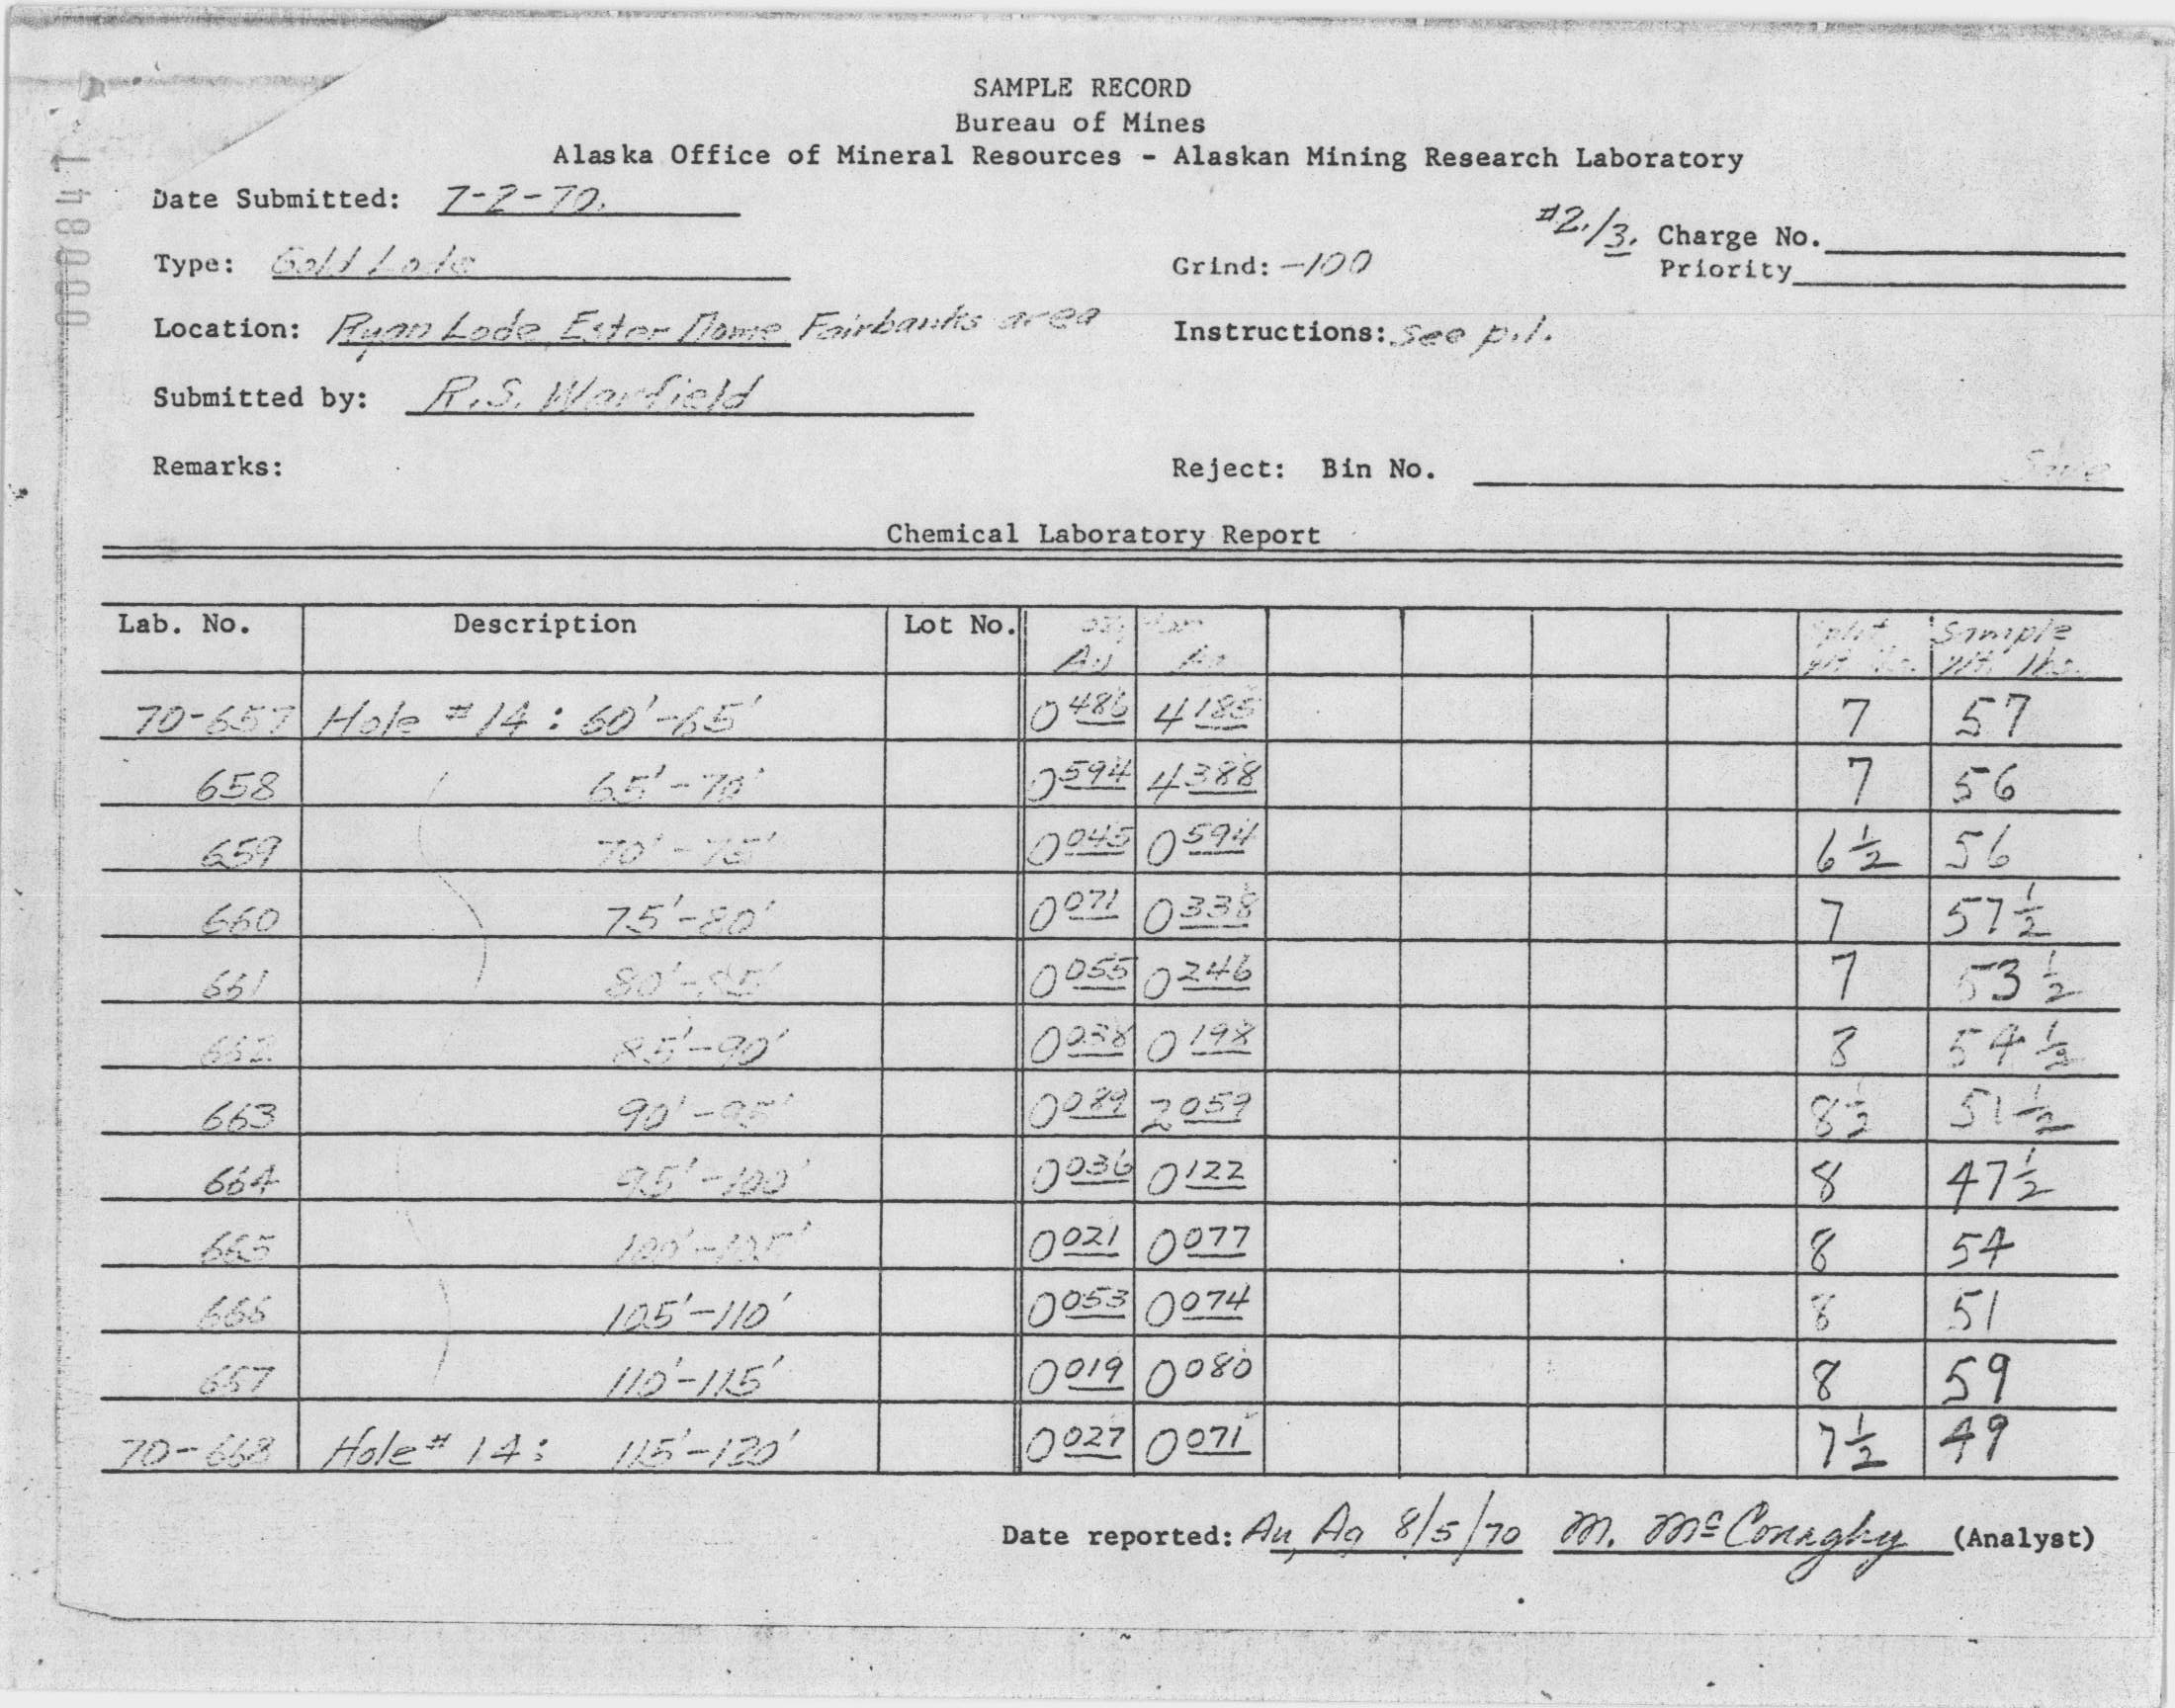 SAMPLE RECORD
Bureau of Mines
Alaska Office of Mineral Resources - Alaskan Mining Research Laboratory
Date Submitted: 7-2-70.
#2./3. Charge No.
Type: Gold Lode Grind: -100 Priority
Location: Ryan Lode, Ester Dome Fairbanks area Instructions: See p.1.
Submitted by: R.S. Warfield
Remarks: Reject: Bin No. Save
Chemical Laboratory Report
Lab. No. Description Lot No. Au Ag Split Wt. lbs. Sample Wt. lbs.
70-657 Hole #14: 60'-65' 0486 4185 7 57
658 65'-70' 0594 4388 7 56
659 70'-75' 0045 0594 6 1/2 56
660 75'-80' 0071 0338 7 57 1/2
661 80'-85' 0055 0246 7 53 1/2
662 85'-90' 0038 0198 8 54 1/2
663 90'-95' 0089 2059 8 1/2 51 1/2
664 95'-100' 0036 0122 8 47 1/2
665 100'-105' 0021 0077 8 54
666 105'-110' 0053 0074 8 51
667 110'-115' 0019 0080 8 59
70-668 Hole #14: 115'-120' 0027 0071 7 1/2 49
Date reported: Au, Ag 8/5/70 M. McConaghy (Analyst)
000841